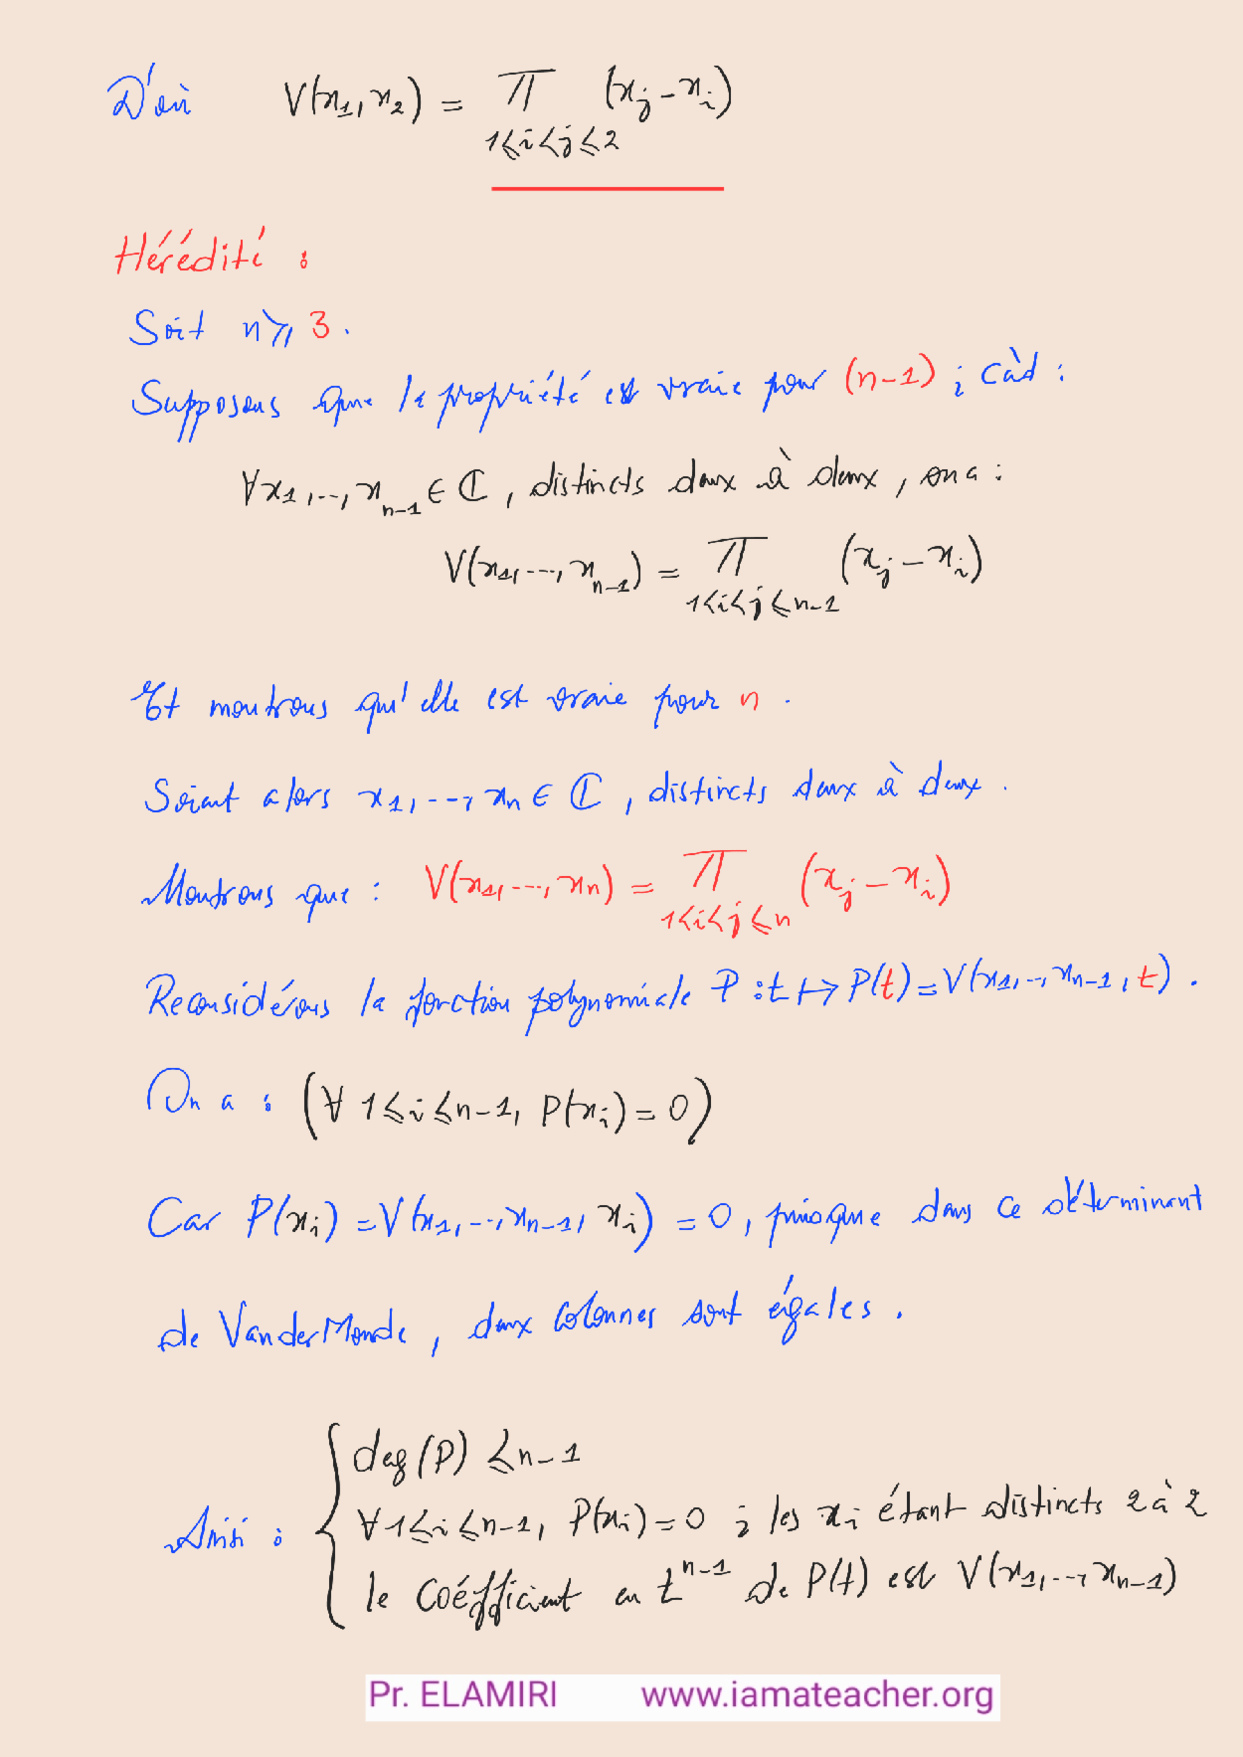 D'où V(x₁, x₂) = ∏ (xⱼ - xᵢ)
1≤i<j≤2
Hérédité :
Soit n ≥ 3.
Supposons que la propriété est vraie pour (n-1) ; càd :
∀x₁, ..., xₙ₋₁ ∈ ℂ, distincts deux à deux, on a :
V(x₁, ..., xₙ₋₁) = ∏ (xⱼ - xᵢ)
1≤i<j≤n-1
Et montrons qu'elle est vraie pour n.
Soient alors x₁, ..., xₙ ∈ ℂ, distincts deux à deux.
Montrons que : V(x₁, ..., xₙ) = ∏ (xⱼ - xᵢ)
1≤i<j≤n
Reconsidérons la fonction polynomiale P : t ↦ P(t) = V(x₁, ..., xₙ₋₁, t).
On a : (∀ 1≤i≤n-1, P(xᵢ) = 0)
Car P(xᵢ) = V(x₁, ..., xₙ₋₁, xᵢ) = 0, puisque dans ce déterminant
de VanderMonde, deux colonnes sont égales.
deg(P) ≤ n-1
Ainsi : { ∀ 1≤i≤n-1, P(xᵢ) = 0 ; les xᵢ étant distincts 2 à 2
le Coéfficient en tⁿ⁻¹ de P(t) est V(x₁, ..., xₙ₋₁)
Pr. ELAMIRI www.iamateacher.org